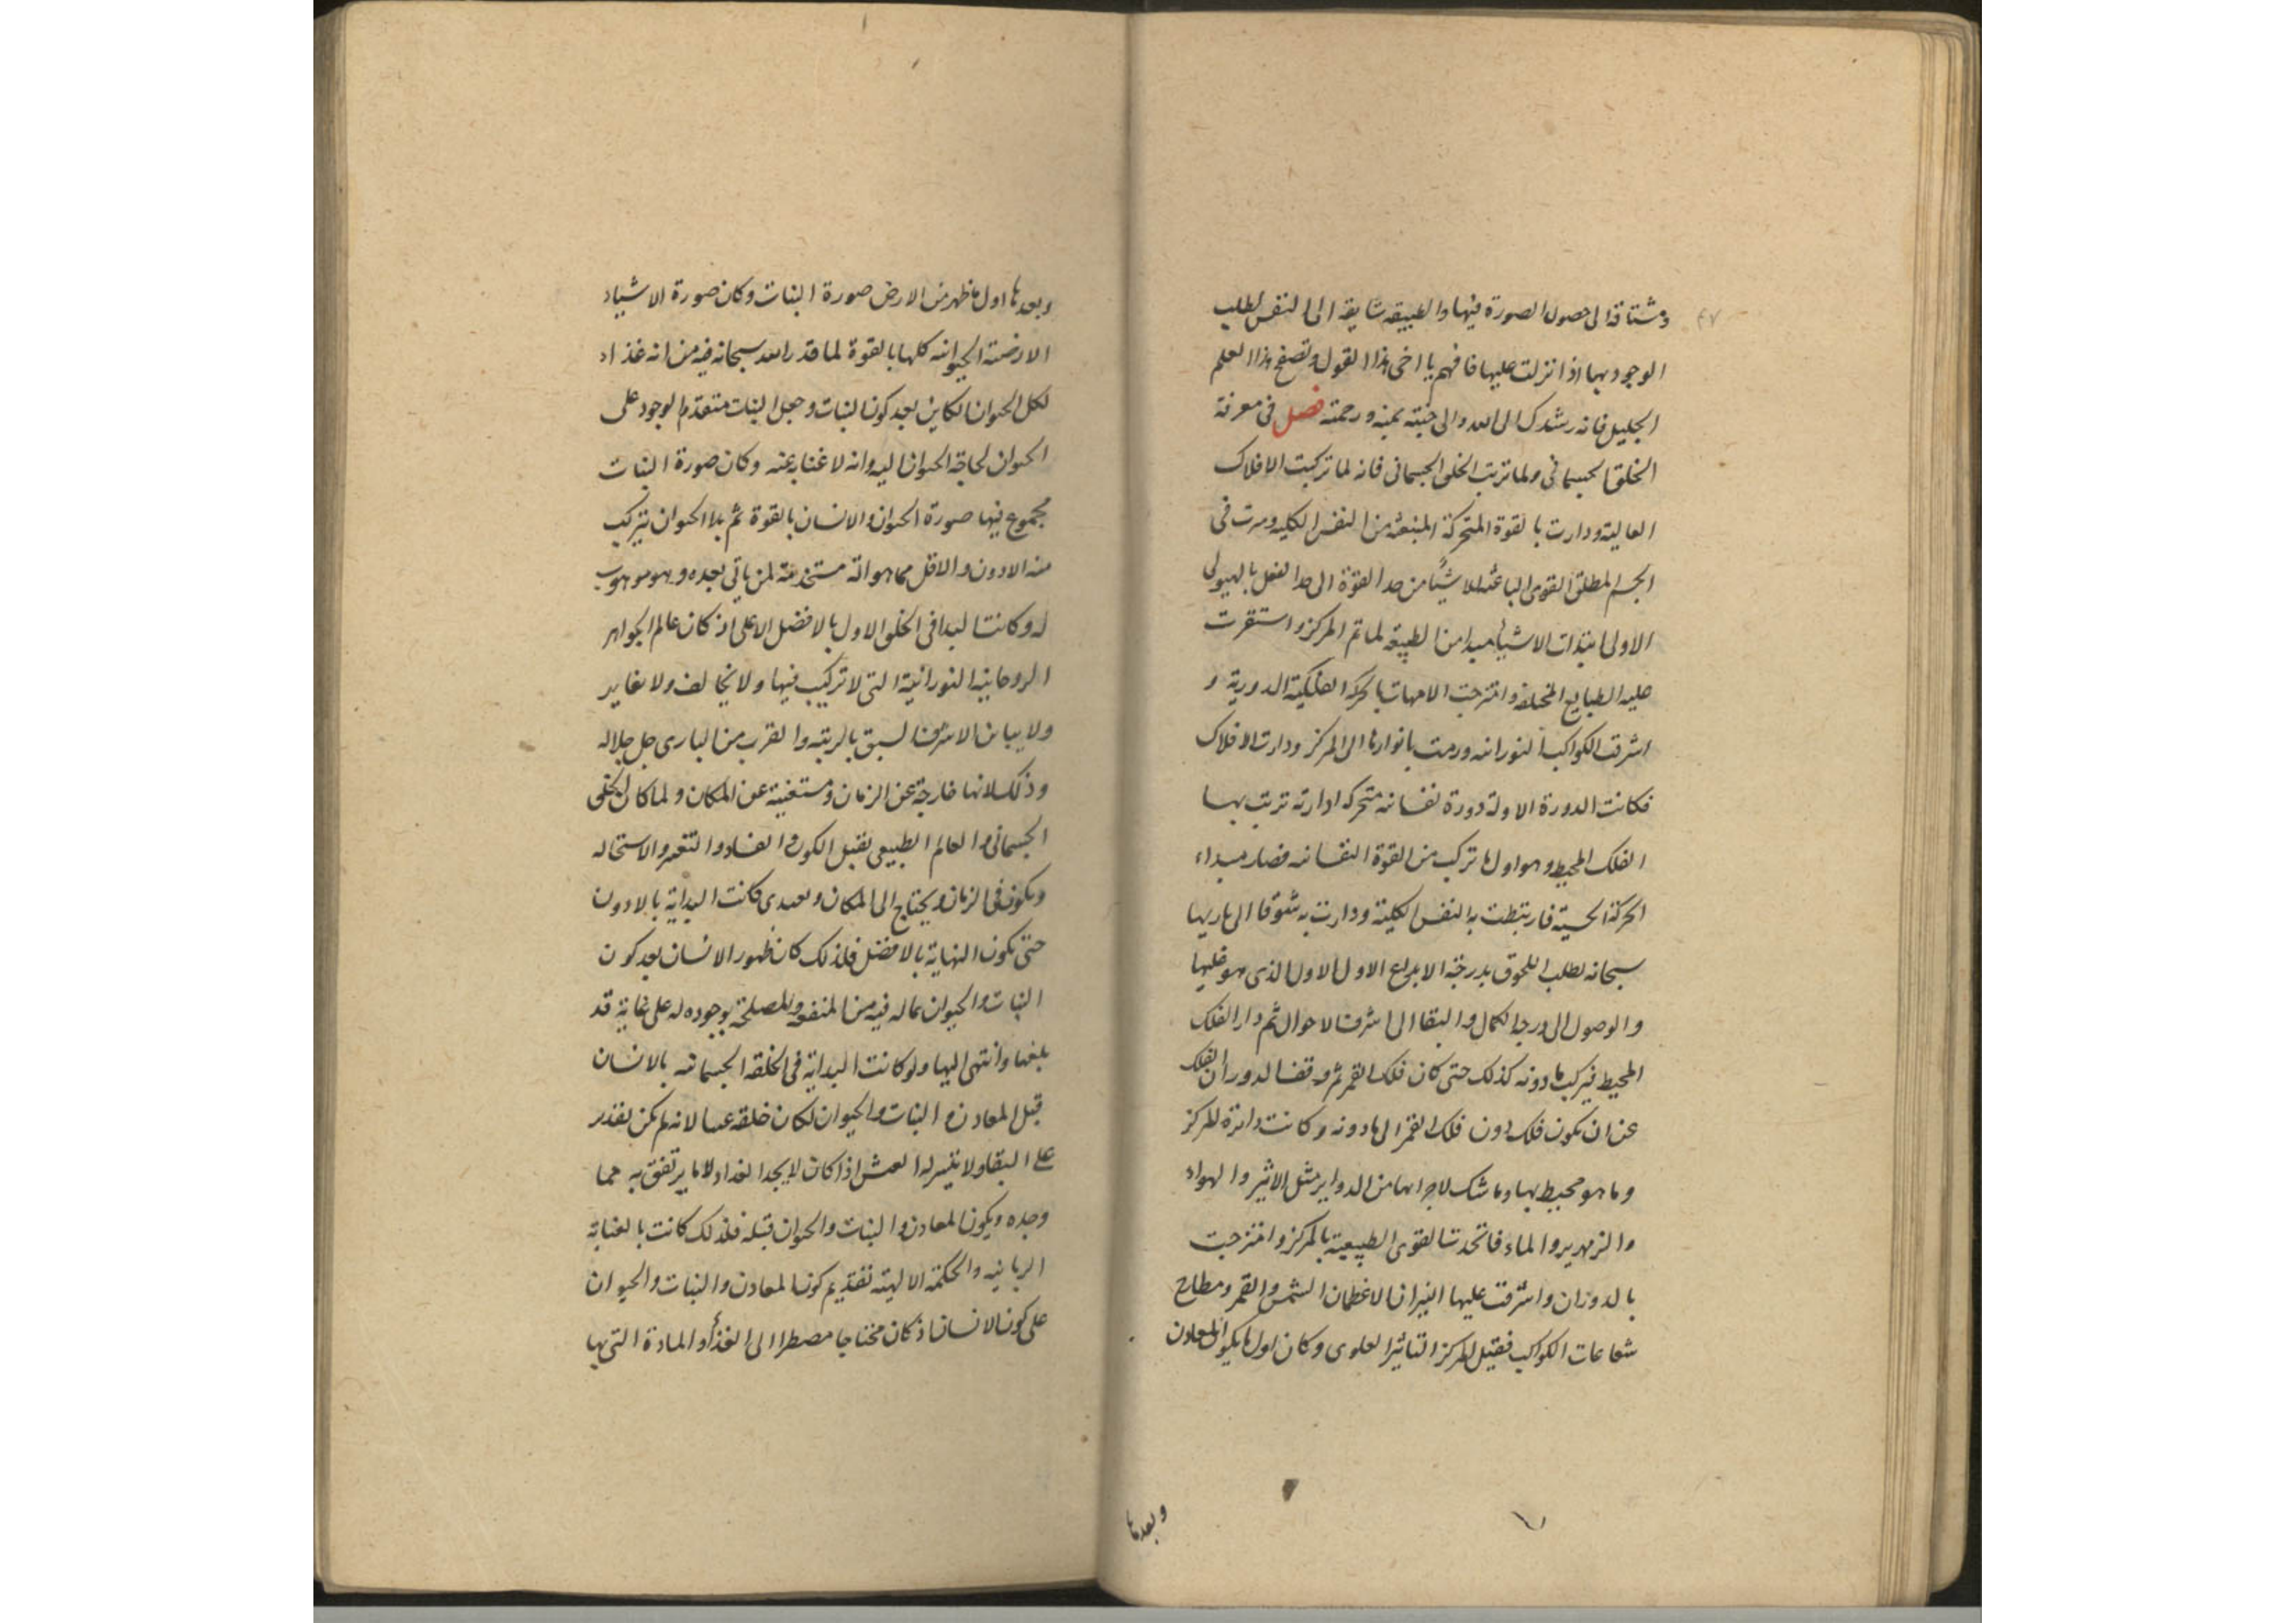 ٤٧
ومشتاقة الى حصول الصورة فيها والطبيقه شايقة الى النفس لطلب
الوجود بها اذا نزلت عليها فافهم يا اخى هذا القول وتصفح هذا العلم
الجليل فانه رشدك الى الله والى جنته بمنه ورحمته فصل فى معرفة
الخلق الجسمانى ولما ترتب الخلق الجسمانى فانه لما تركبت الافلاك
العالية ودارت بالقوة المتحركة المنبعثه من النفس الكليه وسرت فى
الجسم المطلق القوى الباعثه للاشيئا من حد القوة الى حد الفعل بالهيولى
الاولى ابتدات الاشيا مبدا من الطبيعه لما تم المركز واستقرت
عليه الطبايع المختلفه وامتزجت الامهات بالحركه الفلكية الدورية و
اشرقت الكواكب النورانيه ورمت بانوارها الى المركز ودارت الافلاك
فكانت الدورة الاولة دورة نفسانيه متحركه ادارته ترتب بها
الفلك المحيط وهو اول ما تركب من القوة النفسانيه فصار مبداء
الحركة الحسية فارتبطت به النفس الكلية ودارت به شوقا الى باريها
سبحانه لطلب اللحوق بدرجة الابداع الاول الاول الذى هو عليها
والوصول الى درجة الكمال والبقا الى اشرف الاحوال ثم دار الفلك
المحيط فيركب ما دونه كذلك حتى كان فلك القمر ثم وقف الدوران الفلك
عن ان يكون فلك دون فلك القمر الى ما دونه وكانت دائرة المركز
وما هو محيط بها وما شك لاجزائها من الدواير مثل الاثير والهواء
والزمهرير والماء فاتحدت القوى الطبيعية بالمركز وامتزجت
بالدوران واشرقت عليها النيران الاعظمان الشمس والقمر ومطارح
شعاعات الكواكب فقبل المركز التاثير العلوى وكان اول ما يكون المعادن
وبعدها
وبعدها اول ما ظهر من الارض صورة النبات وكان صورة الاشياء
الارضية الحيوانيه كلها بالقوة لما قدر الله سبحانه فيه من انه غذاء
لكل الحيوان الكاين بعد كون النبات وجعل النبات متقدم الوجود على
الحيوان لحاجة الحيوان اليه وانه لا غناء عنه وكان صورة النبات
مجموع فيها صورة الحيوان والانسان بالقوة ثم بدا الحيوان يتركب
منه الادون والاقل مما هو اله مستخدمة لمن ياتى بعده وهو موهوب
له وكانت البدا فى الخلق الاول بالافضل الاعلى اذ كان عالم الجواهر
الروحانية النورانية التى لا تركيب فيها ولا تخالف ولا تغاير
ولا يباين الاشرف السبق بالرتبه والقرب من البارى جل جلاله
وذلك لانها خارجة عن الزمان ومستغنية عن المكان ولما كان الخلق
الجسمانى والعالم الطبيعى يقبل الكون والفساد والتغير والاستحاله
ويكون فى الزمان ويحتاج الى المكان فكانت البداية بالادون
حتى يكون النهاية بالافضل فلذلك كان ظهور الانسان بعد كون
النبات والحيوان بما له فيه من المنفعه والمصلحة بوجوده له على غاية قد
بلغها وانتهى اليها ولو كانت البداية فى الخلقه الجسمانيه بالانسان
قبل المعادن والنبات والحيوان لكان خلقه عبثا لانه لم يكن يقدر
على البقا ولا يتيسر له العيش اذا كان لا يجد الغذاء ولا ما يرتفق به مما
وجده ويكون المعادن والنبات والحيوان قبله فلذلك كانت بالعناية
الربانيه والحكمة الالهية تقديم كون المعادن والنبات والحيوان
على كون الانسان اذ كان محتاجا مضطرا الى الغذأ والمادة التى بها